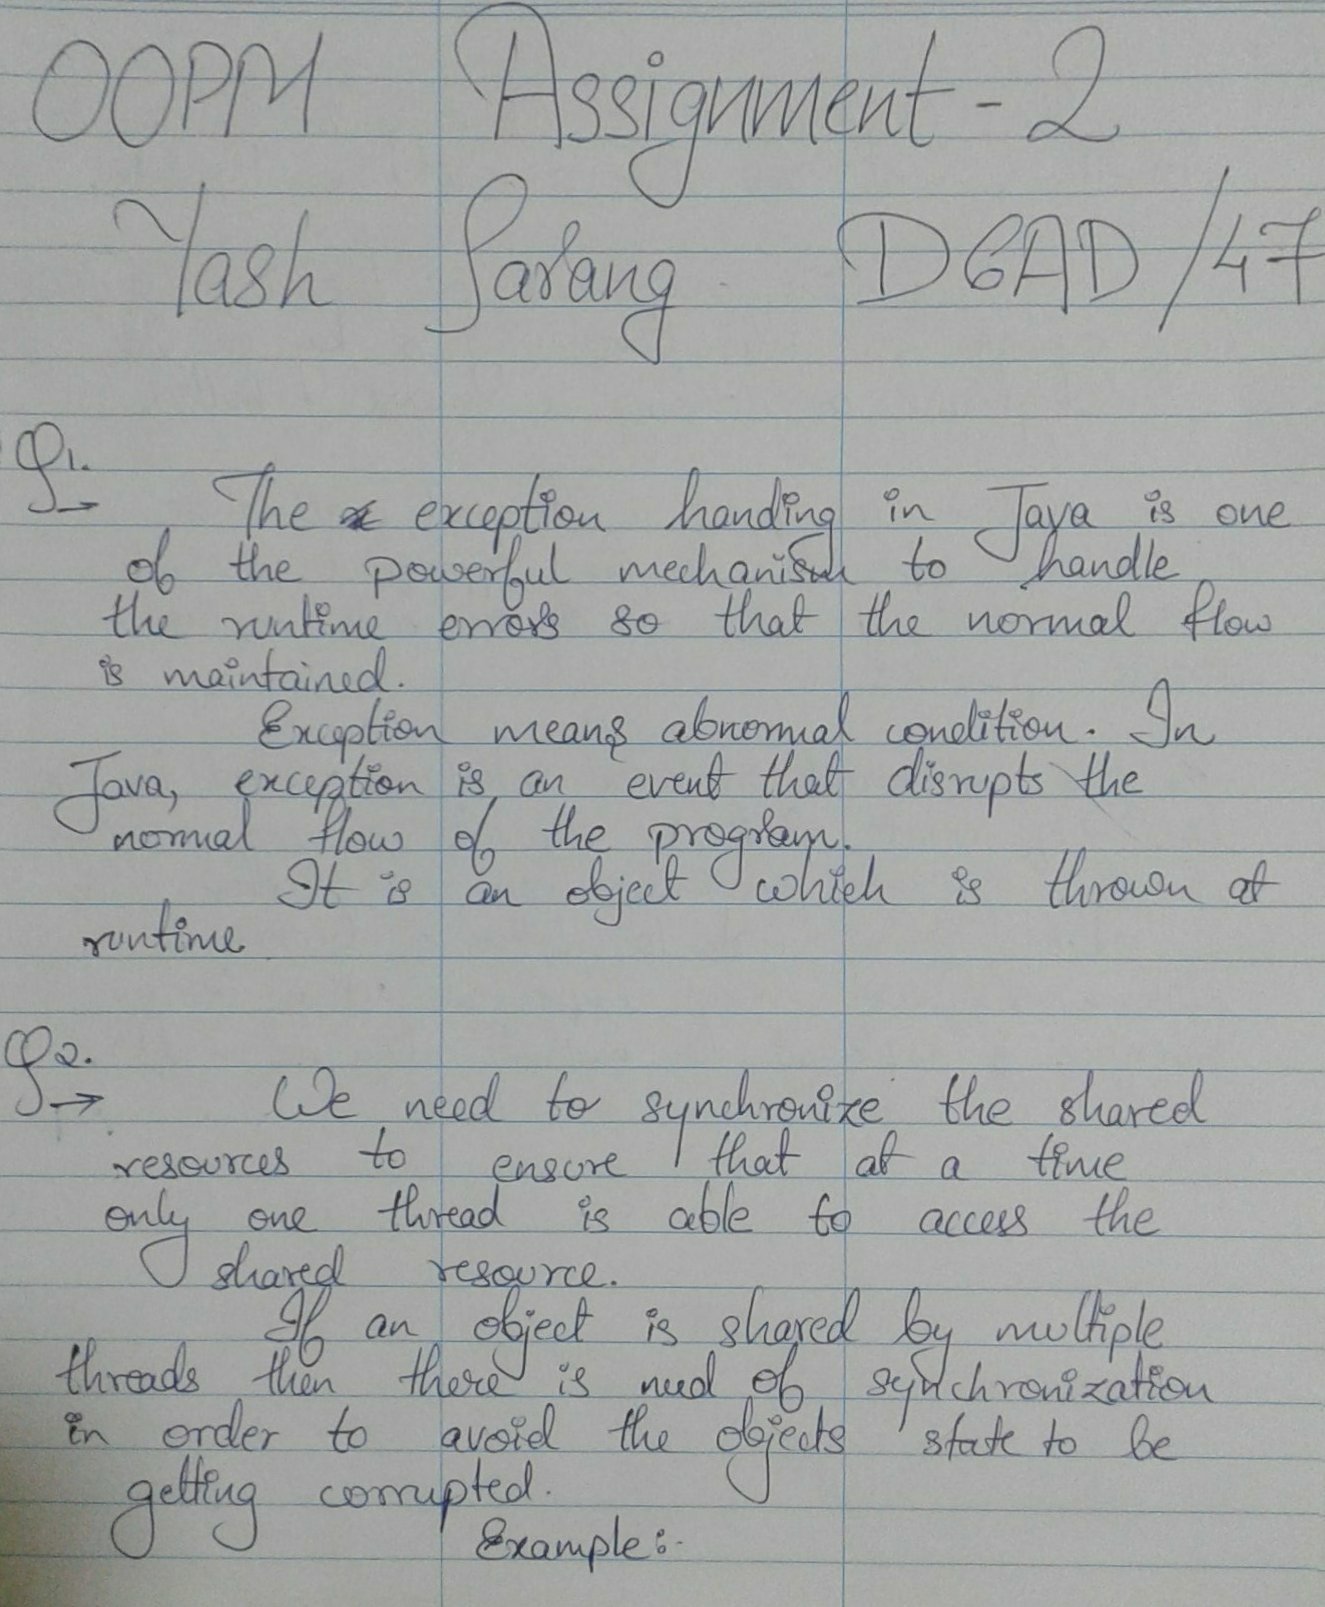 OOPM Assignment - 2
Yash Sarang D6AD/47
Q1.
→ The exception handing in Java is one
of the powerful mechanism to handle
the runtime errors so that the normal flow
is maintained.
Exception means abnormal condition. In
Java, exception is an event that disrupts the
normal flow of the program.
It is an object which is thrown at
runtime
Q2.
→ We need to synchronize the shared
resources to ensure that at a time
only one thread is able to access the
shared resource.
If an object is shared by multiple
threads then there is need of synchronization
in order to avoid the objects state to be
getting corrupted.
Example:-